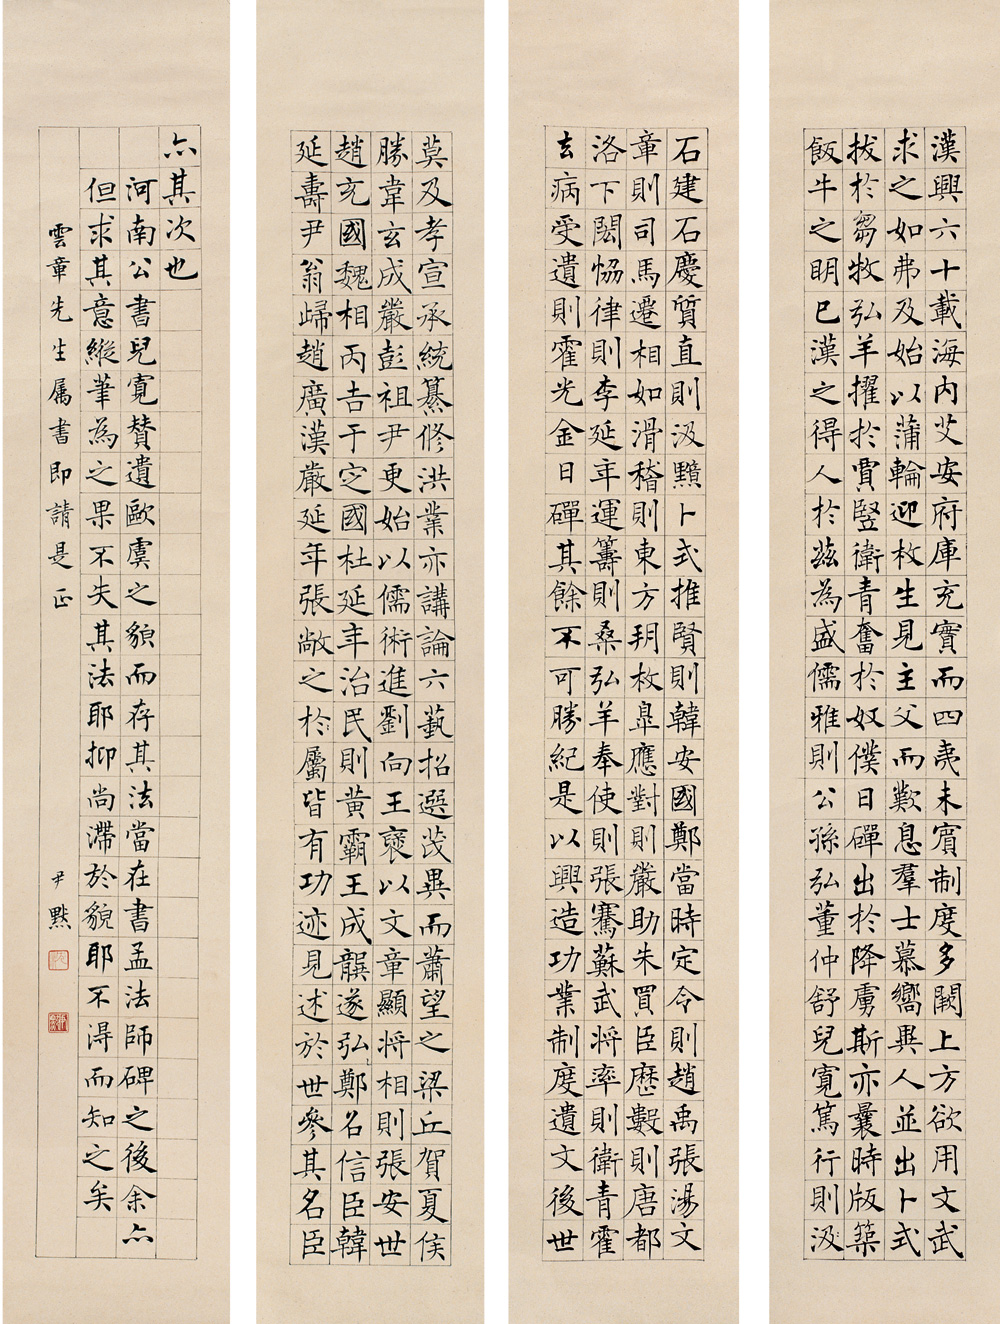 漢興六十載海内艾安府庫充實而四夷未賓制度多闕上方欲用文武
求之如弗及始以蒲輪迎枚生見主父而歎息羣士慕嚮異人並出卜式
拔於芻牧弘羊擢於賈豎衛青奮於奴僕日磾出於降虜斯亦曩時版築
飯牛之明已漢之得人於茲為盛儒雅則公孫弘董仲舒兒寬篤行則汲
石建石慶質直則汲黯卜式推賢則韓安國鄭當時定令則趙禹張湯文
章則司馬遷相如滑稽則東方朔枚臯應對則嚴助朱買臣歷數則唐都
洛下閎恊律則李延年運籌則桑弘羊奉使則張騫蘇武將率則衛青霍
去病受遺則霍光金日磾其餘不可勝紀是以興造功業制度遺文後世
莫及孝宣承統纂修洪業亦講論六藝招選茂異而蕭望之梁丘賀夏侯
勝韋玄成嚴彭祖尹更始以儒術進劉向王褒以文章顯將相則張安世
趙充國魏相丙吉于定國杜延年治民則黄霸王成龔遂弘鄭名信臣韓
延壽尹翁歸趙廣漢嚴延年張敞之於屬皆有功迹見述於世參其名臣
亦其次也
河南公書兒寬贊遺歐虞之貌而存其法當在書孟法師碑之後余亦
但求其意縱筆為之果不失其法耶抑尚滯於貌耶不得而知之矣
雲章先生属書即請是正
尹默